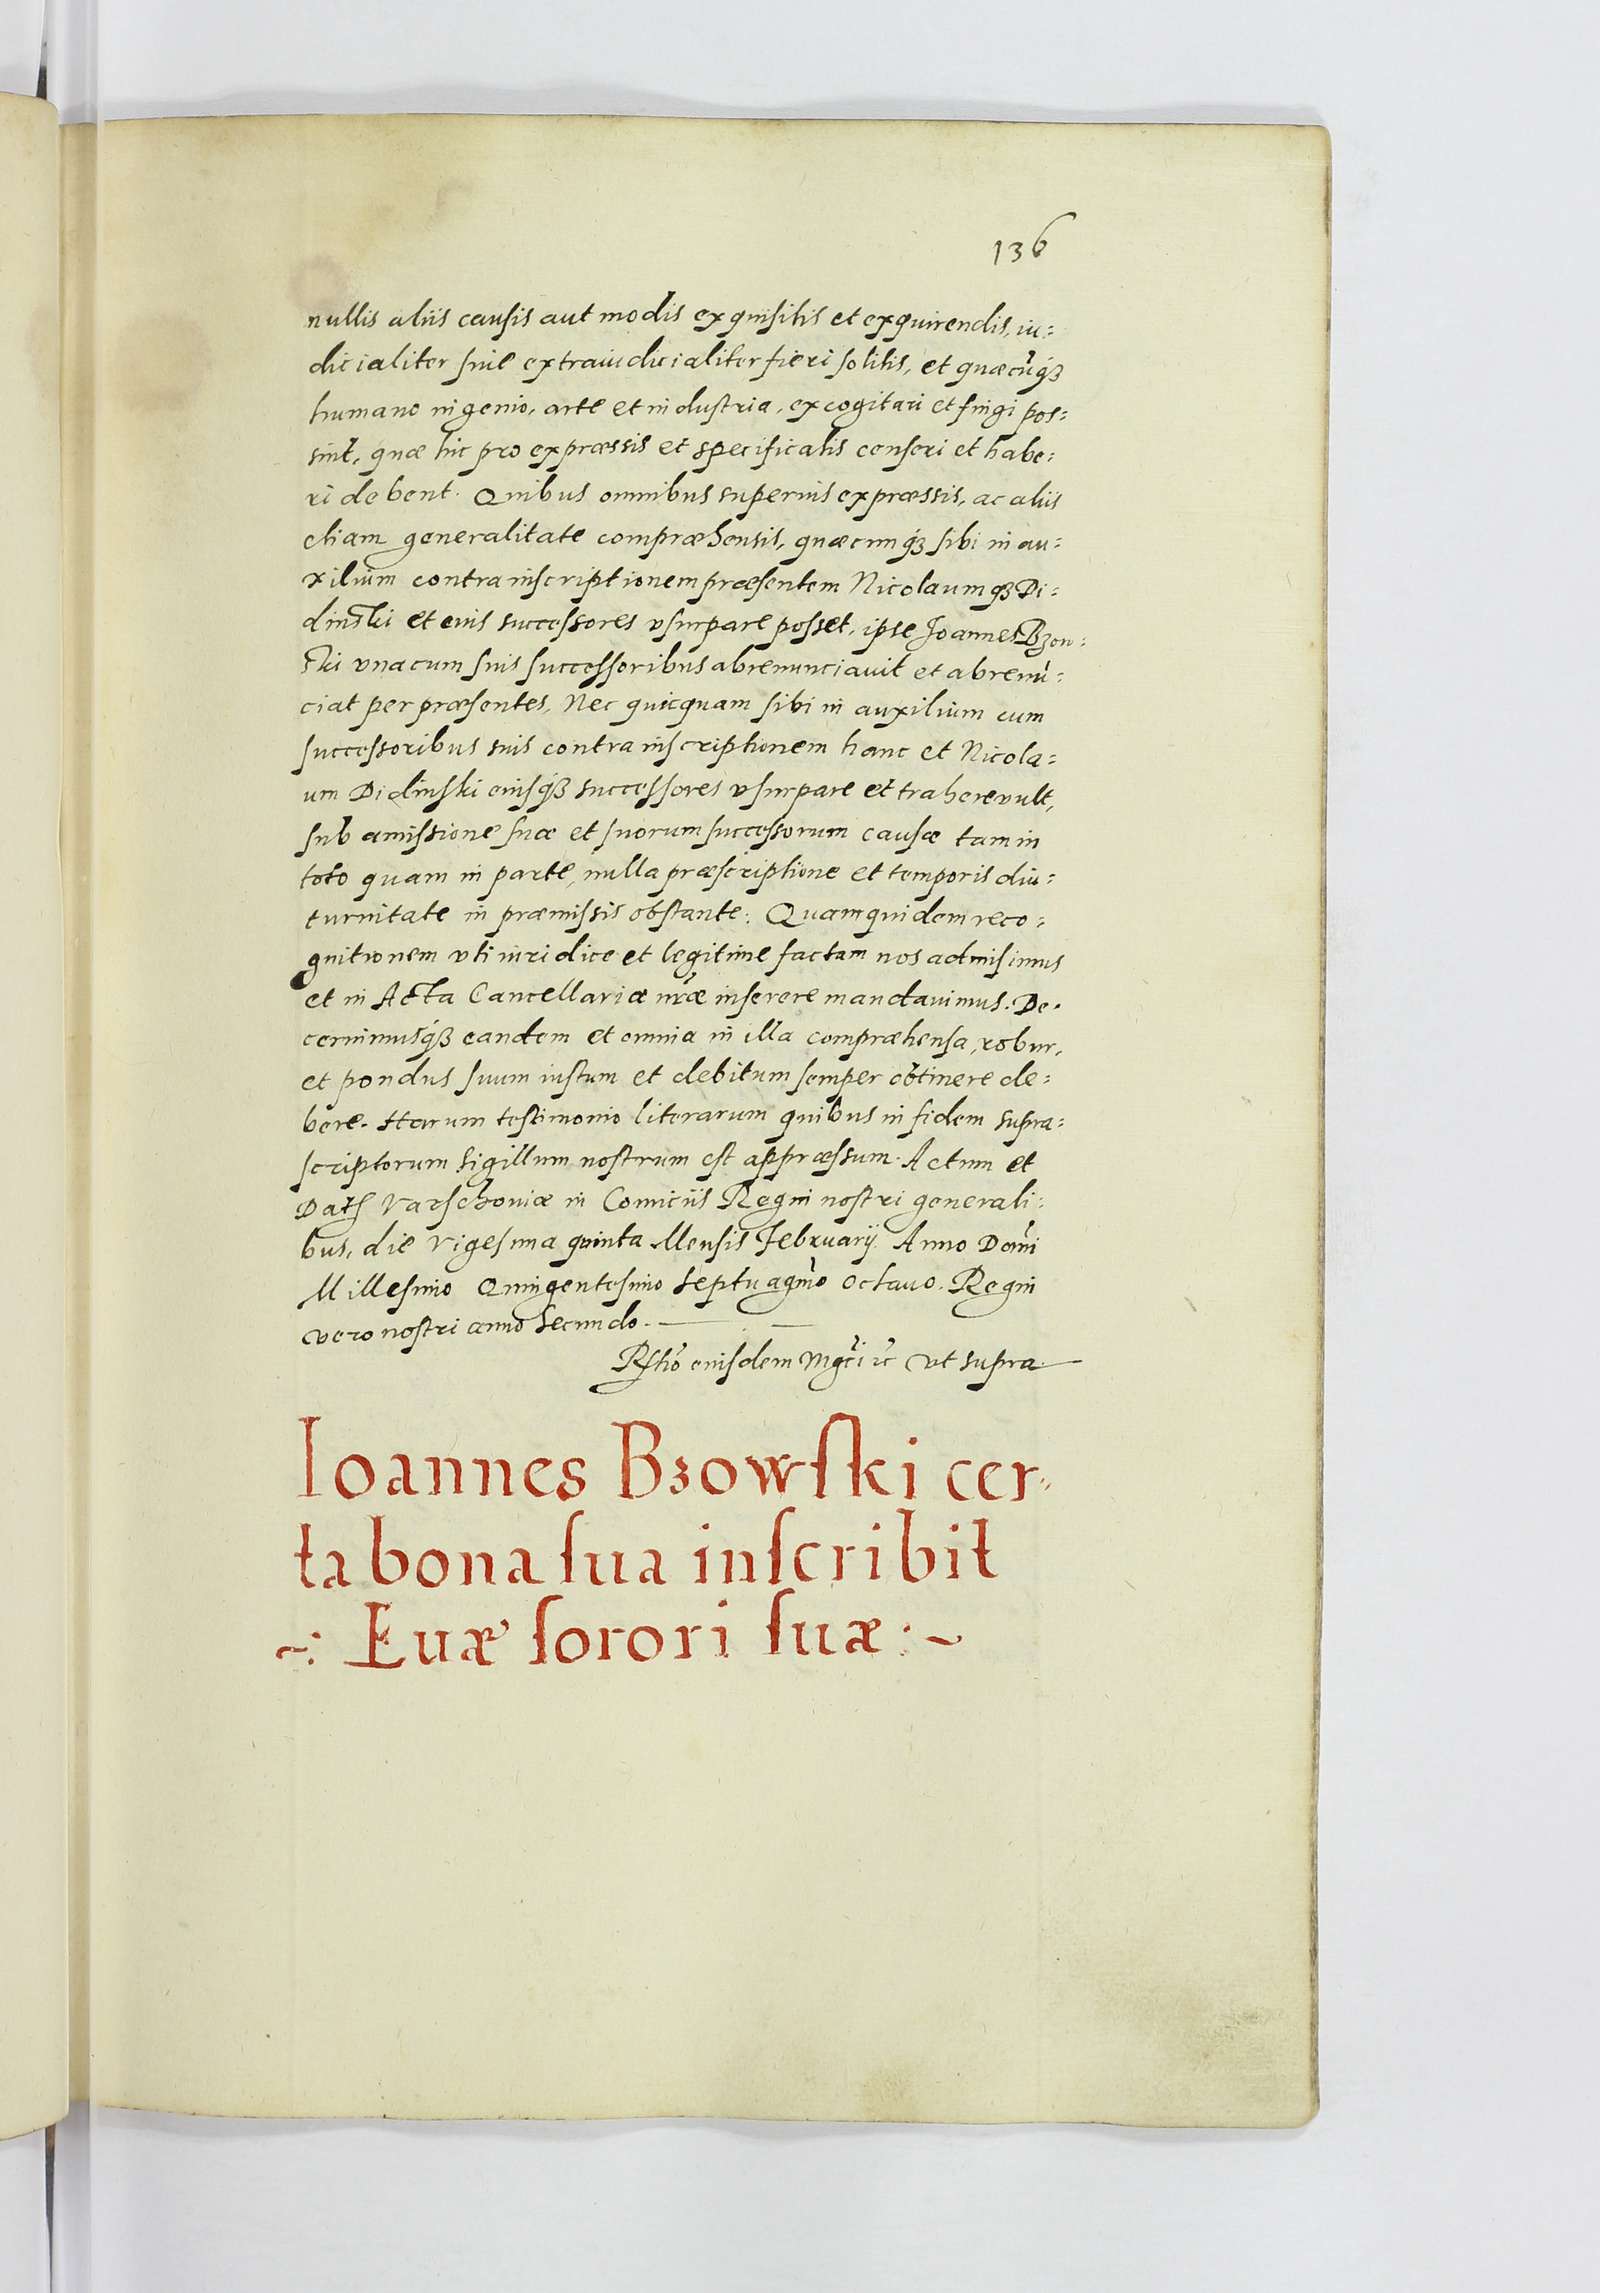 136
nullis aliis causis aut modis exquisitis et exquirendis, iu=
dicialiter siue extraiudicialiter fieri solitis, et quæcūq3
humano ingenio, arte et industria, excogitari et fingi pos=
sint, quæ hic pro expræssis et specificatis censeri et habe=
ri debent. Quibus omnibus superius expræssis, ac aliis
etiam generalitate compræhensis, quæcunq3 sibi in au=
xilium contra inscriptionem præsentem Nicolaumq3 Di=
dinski et eius successores vsurpare posset, ipse Joannes Bzow=
ski vna cum suis successoribus abrenunciauit et abrenū=
ciat per præsentes, Nec quicquam sibi in auxilium cum
successoribus suis contra inscriptionem hanc et Nicola=
um Didinski eiusq3 successores vsurpare et trahere vult,
sub amissione suæ et suorum successorum causæ tam in
toto quam in parte, nulla præscriptione et temporis diu=
turnitate in præmissis obstante. Quamquidem reco=
gnitionem vti iuridice et legitime factam nos admisimus
et in Acta Cancellariæ nr̃æ inserere mandauimus. De=
cernimusq3 eandem et omnia in illa compræhensa, robur,
et pondus suum iustum et debitum semper obtinere de=
bere. Harum testimonio literarum quibus in fidem supra=
scriptorum sigillum nostrum est appræssum. Actum et
Dat̃ Varschouiæ in Comiciis Regni nostri generali=
bus, die vigesima quinta Mensis February. Anno Domĩ
Millesimo Quingentesimo septuagmõ octauo. Regni
vero nostri anno secundo.
Rľtio eiusdem Mgcĩ ꝛc̃ vt supra
Ioannes Bzowski cer=
ta bona sua inscribit
~: Euæ sorori suæ :~